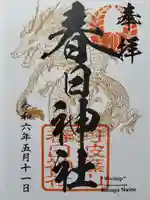 奉拝
春日神社
令和六年五月十一日
"Worship"
Kasuga Shrine